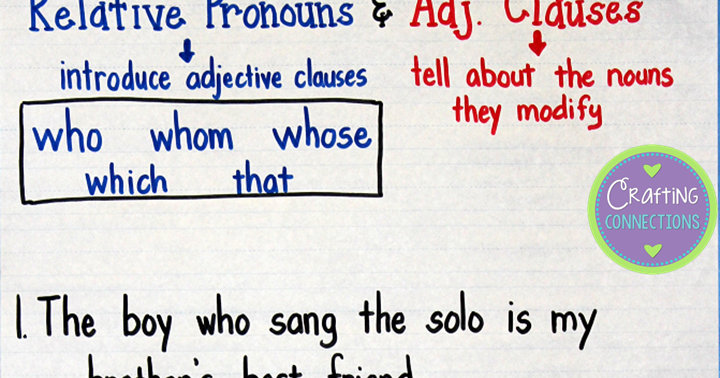 Relative Pronouns & Adj. Clauses
introduce adjective clauses
who whom whose
which that
tell about the nouns
they modify
CRAFTING
CONNECTIONS
1. The boy who sang the solo is my
brother's best friend